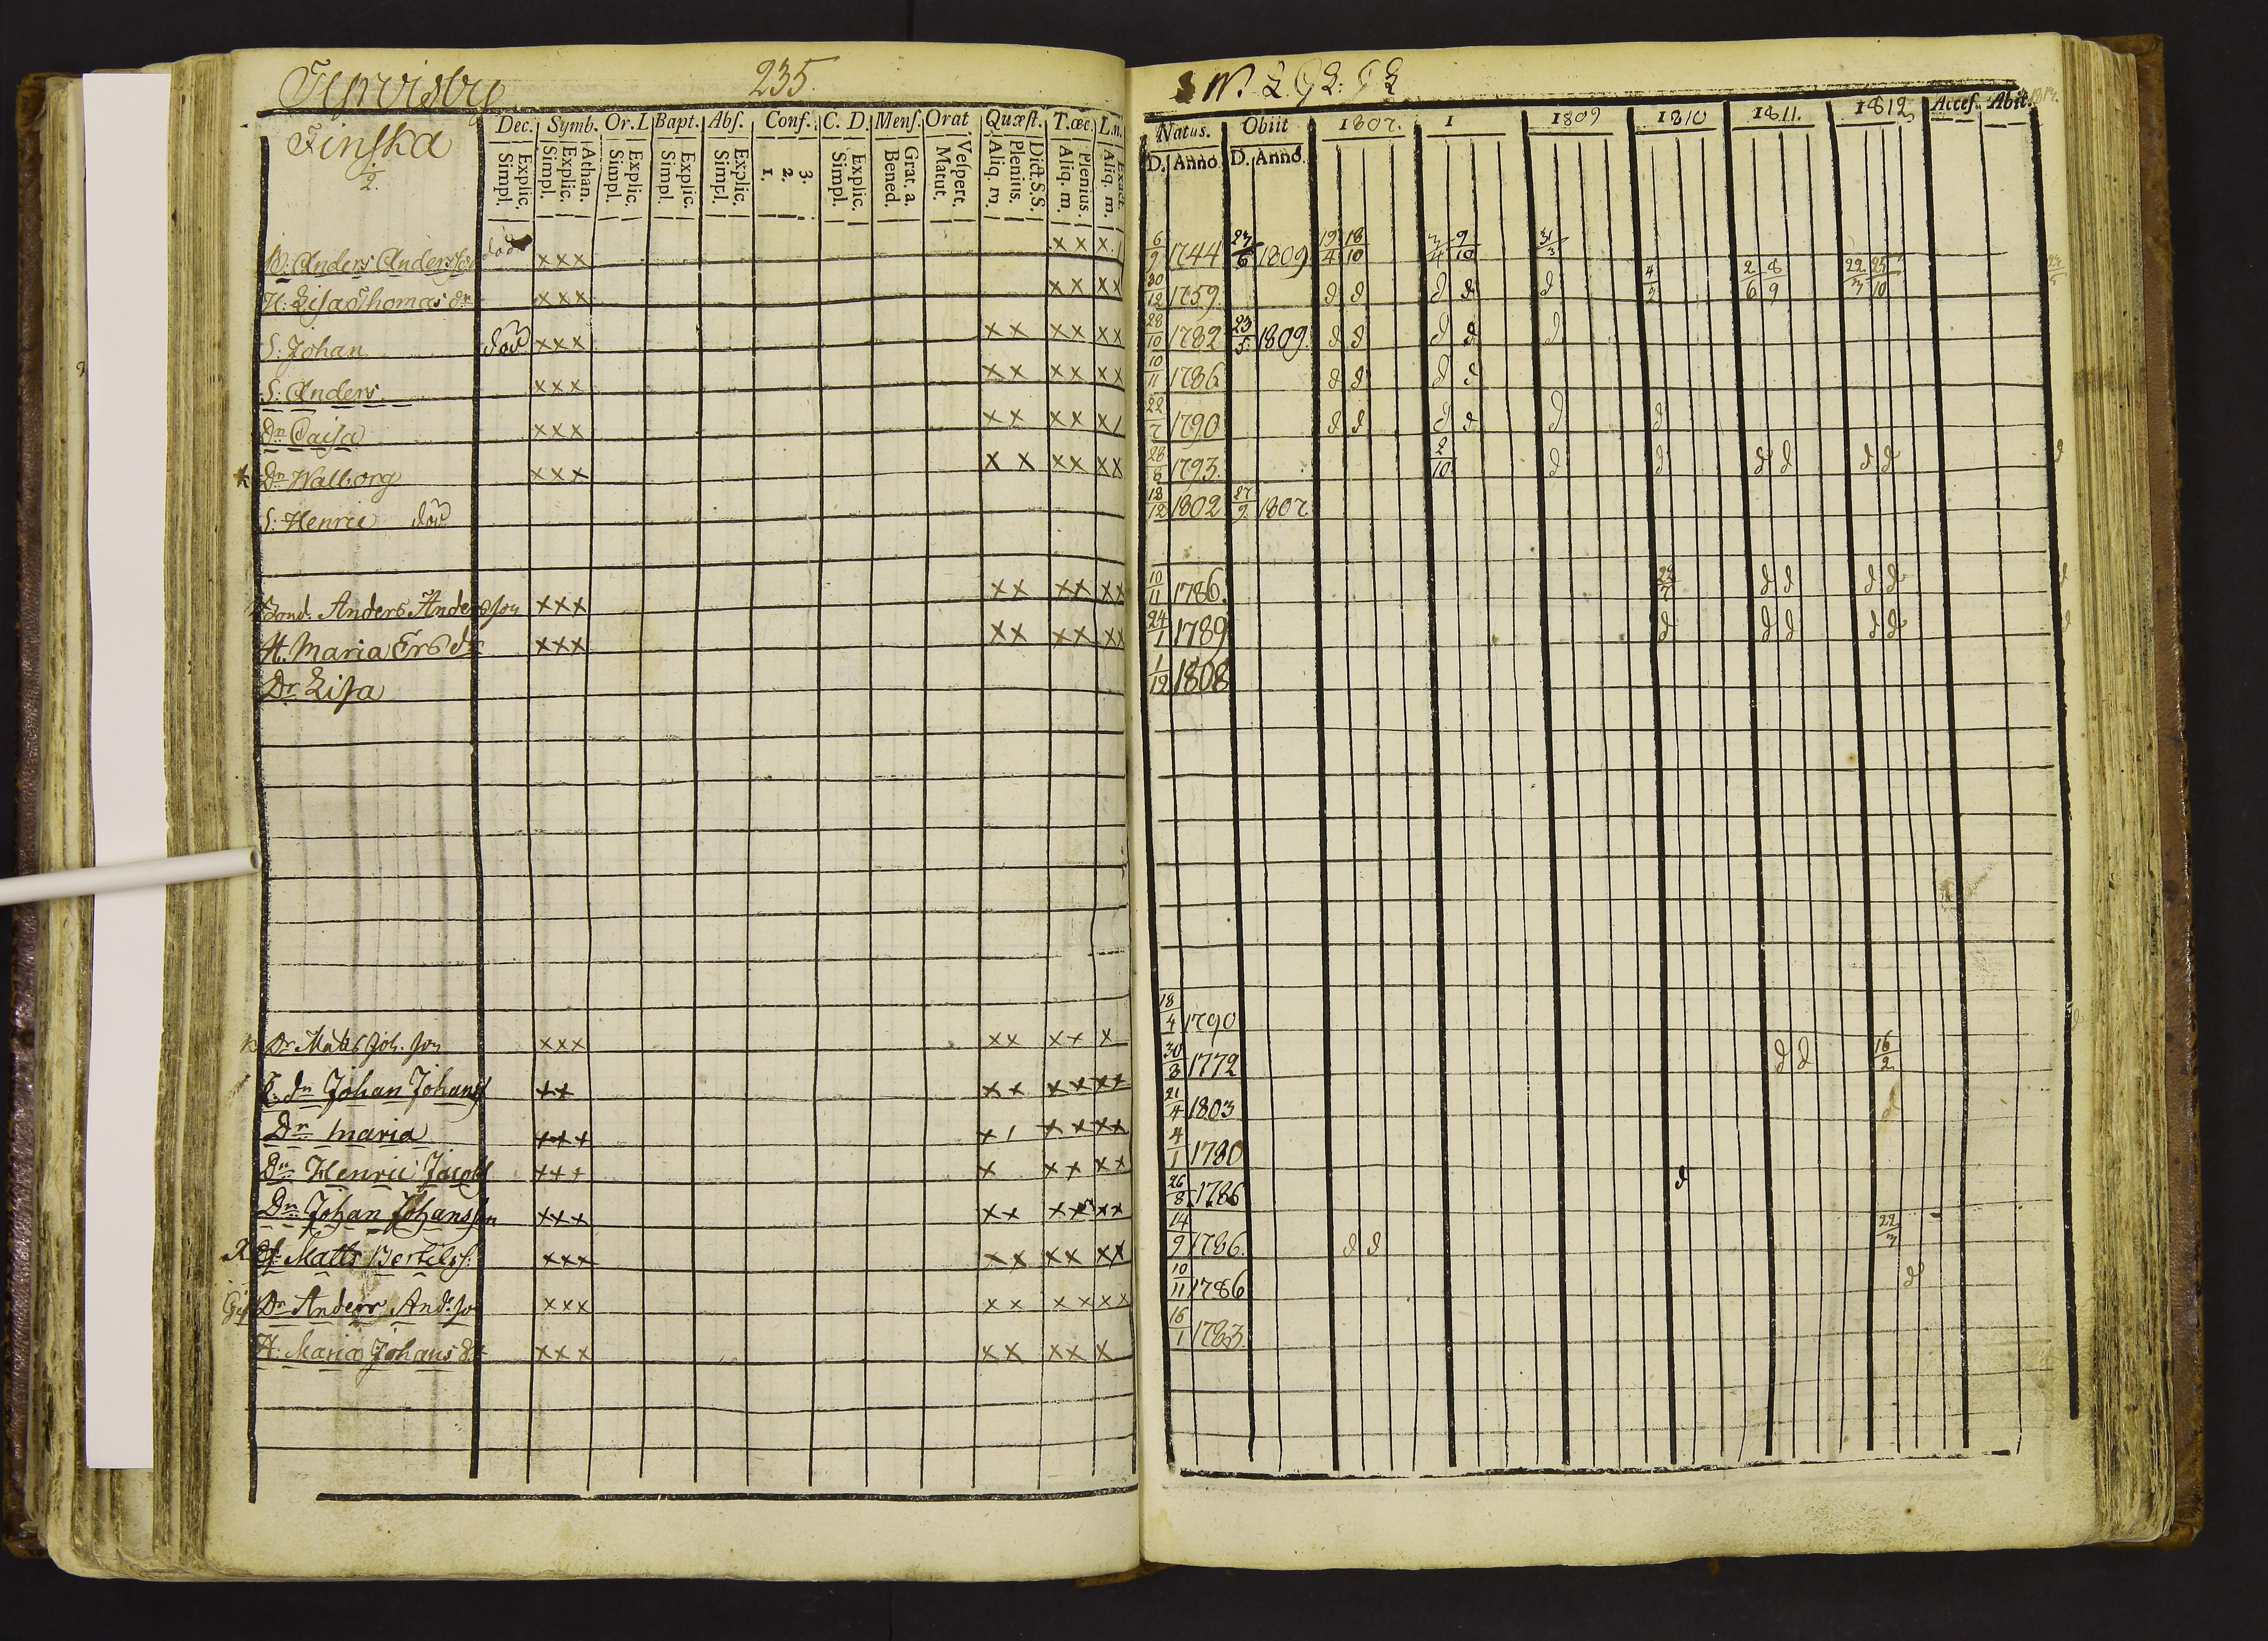 235.
Finska
2.
Dec. Symb. Or. L Bapt. Abſ. Conf. C. D. Menſ. Orat Quæſt. T. œc. L. m.
Explic. Simpl. Athan. Explic. Simpl. Explic. Simpl. Explic. Simpl. Explic. Simpl. 3. 2. 1. Explic. Simpl. Grat. a. Bened. Veſpert. Matut. Dict. S. S. Plenius. Aliq. m. Plenius. Aliq. m. Aliq. m.
Natus. Obiit 1807. 1 1809 1810 1811. 1812 Acceſ. Abit.
D. Anno. D. Anno.
B: Anders Andersson död xxx xx x 6/9 1744 23/6 1809 19/4 18/10 3/4 9/10 31/3
H: Lisa Thomas dr xxx xx xx 30/12 1759. d d d d d 4/3 2/6 8/9 22/3 25/10
S: Johan död xxx xx xx xx 28/10 1782 23/5 1809. d d d d d
S: Anders xxx xx xx xx 10/11 1786 d d d d
Dr Caisa xxx xx xx x 22/7 1790 d d d d d d
Dr Walborg xxx xx xx xx 28/8 1793. 2/10 d d d d d d d
S: Henric död 18/12 1802 27/9 1807
Bond. Anders Andersson xxx xx xx xx 10/11 1786. 22/7 d d d d d
H. Maria Ers dr xxx xx xx xx 24/1 1789 d d d d d d
Dr Lisa 1/12 1808
Dr Matts Joh. son xxx xx xx x 18/4 1790
Johan Johanss xx xx xx xx 30/8 1772 d d 16/2
Dr Maria xxx x xx xx 21/4 1803 d
Dr Henric Jacobss xxx x xx xx 4/1 1780
Dr Johan Johansson xxx xx xx xx 26/8 1786 d
Matts Bertilss. xxx xx xx xx 14/9 1786. d d 22/3
Dr Anders And. so xxx xx xx xx 10/11 1786 d
H: Maria Johans dr xxx xx xx x 16/1 1783